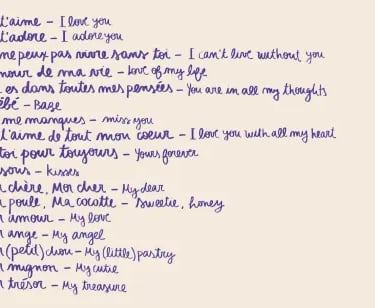 t'aime – I love you
t'adore – I adore you
ne peux pas vivre sans toi – I can't live without you
mour de ma vie – love of my life
es dans toutes mes pensées – You are in all my thoughts
ébé – Babe
me manques – miss you
t'aime de tout mon coeur – I love you with all my heart
toi pour toujours – Yours forever
sous – kisses
chère, Mon cher – My dear
poule, Ma cocotte – sweetie, honey
amour – My love
ange – My angel
(petit) chou – My (little) pastry
mignon – My cutie
trésor – My treasure